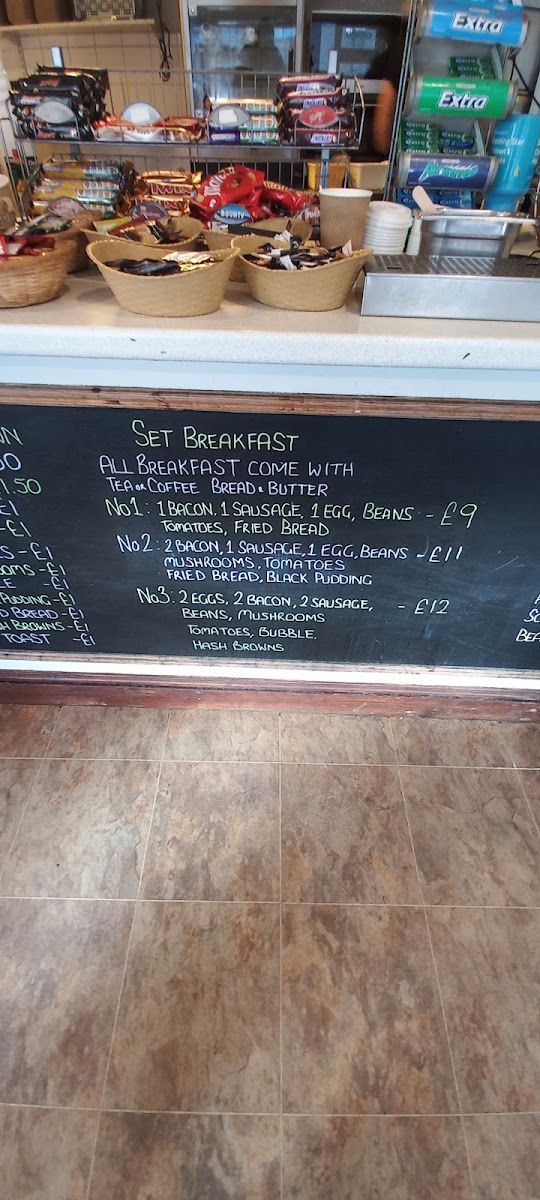 Extra
Extra
Airwaves
SNICKERS
TWIX
BOUNTY
SET BREAKFAST
ALL BREAKFAST COME WITH
TEA OR COFFEE BREAD & BUTTER
No1: 1 BACON. 1 SAUSAGE, 1 EGG, BEANS - £9
TOMATOES, FRIED BREAD
No2: 2 BACON, 1 SAUSAGE, 1 EGG, BEANS - £11
MUSHROOMS, TOMATOES
FRIED BREAD, BLACK PUDDING
No3: 2 EGGS, 2 BACON, 2 SAUSAGE, - £12
BEANS, MUSHROOMS
TOMATOES, BUBBLE.
HASH BROWNS
1.50
£1
-£1
S-£1
OMS-£1
E -£1
PUDDING-£1
D BREAD-£1
H BROWNS-£1
TOAST -£1